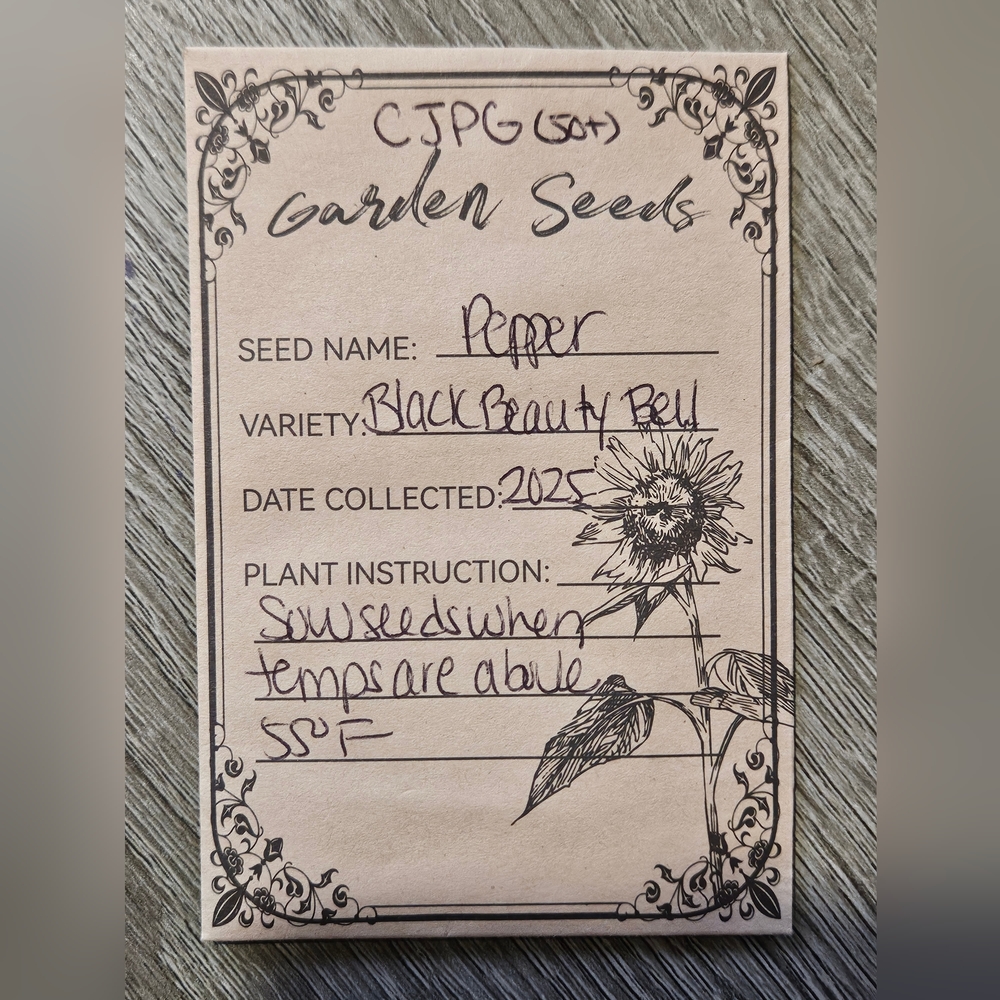 CJPG (50+)
Garden Seeds
SEED NAME: Pepper
VARIETY: Black Beauty Bell
DATE COLLECTED: 2025
PLANT INSTRUCTION:
Sow seeds when
temps are above
55°F